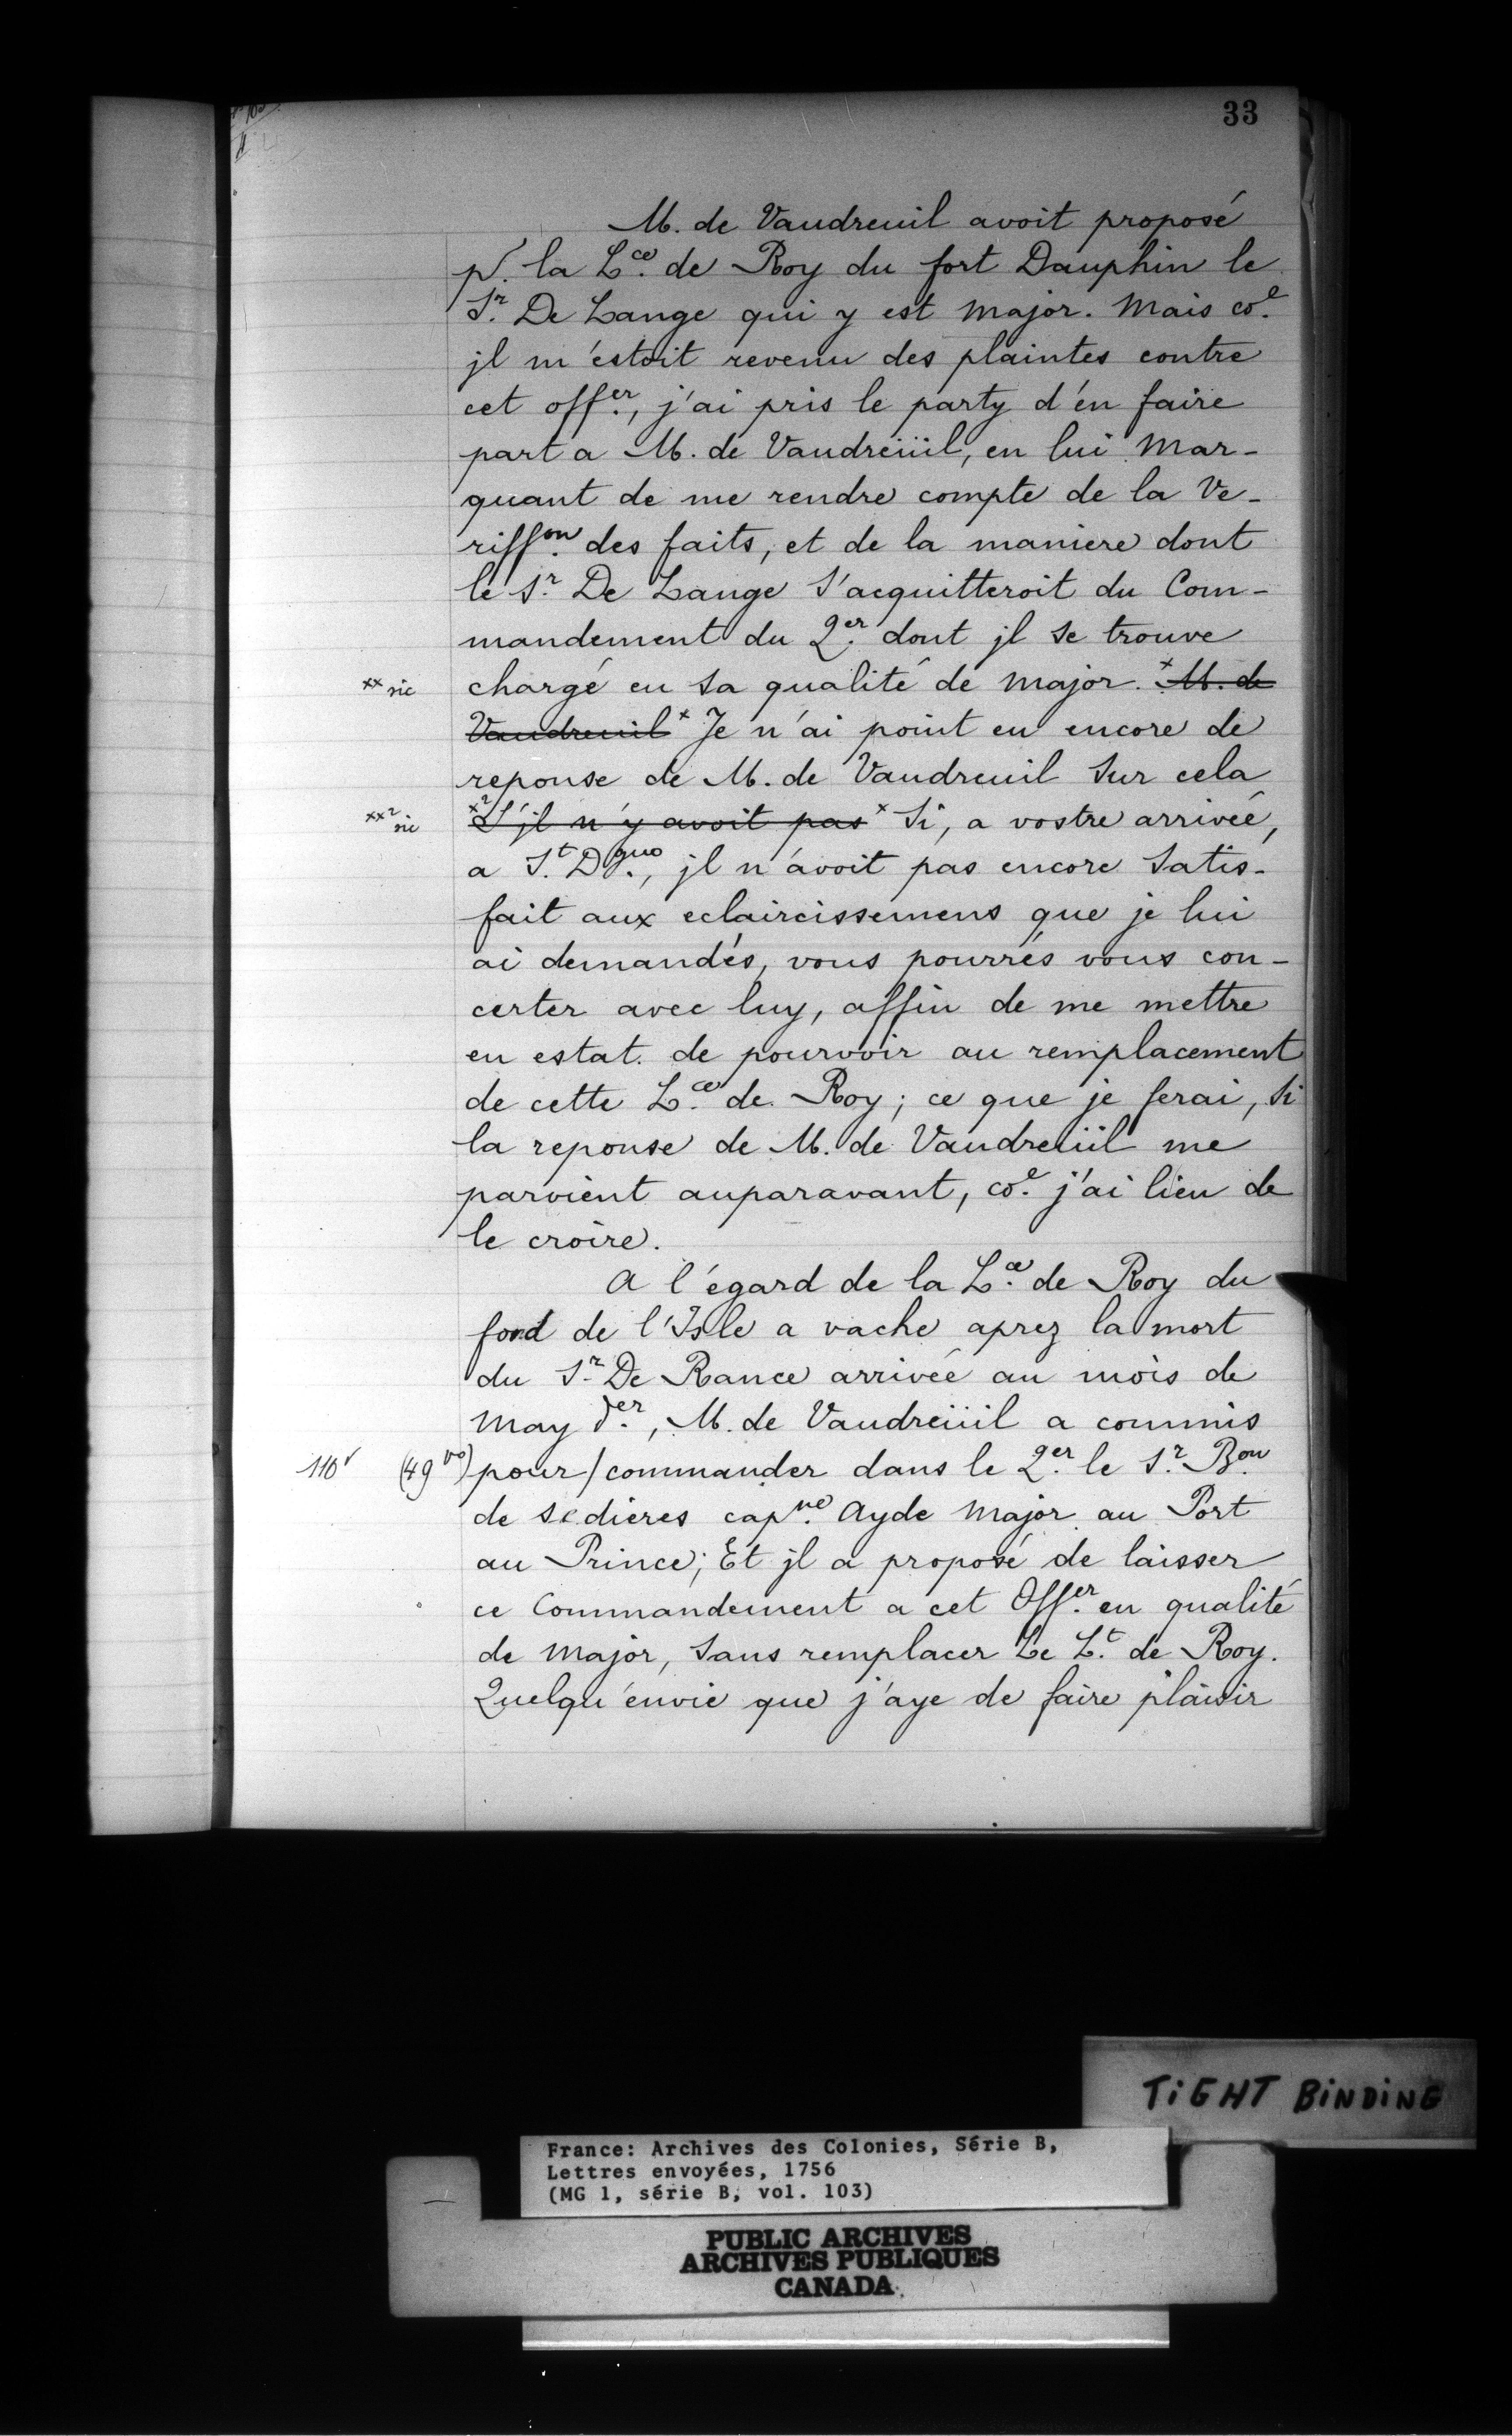 33
M. de Vaudreuil avoit proposé
pr. la Lce. de Roy du fort Dauphin le
Sr. De Lange qui y est Major. Mais coe.
jl m'estoit revenu des plaintes contre
cet offer., j'ai pris le party d'en faire
part a M. de Vaudreüil, en lui Mar-
quant de me rendre compte de la Ve-
riffon. des faits, et de la maniere dont
le Sr. De Lange S'acquitteroit du Com-
mandement du Qer. dont jl se trouve
xx sic chargé en Sa qualité de Major. x M. de
Vaudreuil x Je n'ai point eu encore de
reponse de M. de Vaudreuil Sur cela
xx2 sic x2 S'jl n'y avoit pas x Si, a vostre arrivée,
a St. Dguo., jl n'avoit pas encore Satis-
fait aux eclaircissemens que je lui
ai demandés, vous pourrés vous con-
certer avec luy, affin de me mettre
en estat de pourvoir au remplacement
de cette Lce. de Roy; ce que je ferai, Si
la reponse de M. de Vaudreüil me
parvient auparavant, coe. j'ai lieu de
le croire.
A l'égard de la Lce. de Roy du
fond de l'Isle a vache aprez la mort
du Sr. De Rance arrivée au mois de
May der., M. de Vaudreüil a commis
110 (49 vo) pour/commander dans le Qer. le Sr. Bon.
de Sedieres capne. Ayde Major au Port
au Prince; Et jl a proposé de laisser
ce Commandement a cet Offer. en qualité
de Major, Sans remplacer Le Lt. de Roy.
Quelqu'envie que j'aye de faire plaisir
TiGHT BiNDiNG
France: Archives des Colonies, Série B,
Lettres envoyées, 1756
(MG 1, série B, vol. 103)
PUBLIC ARCHIVES
ARCHIVES PUBLIQUES
CANADA